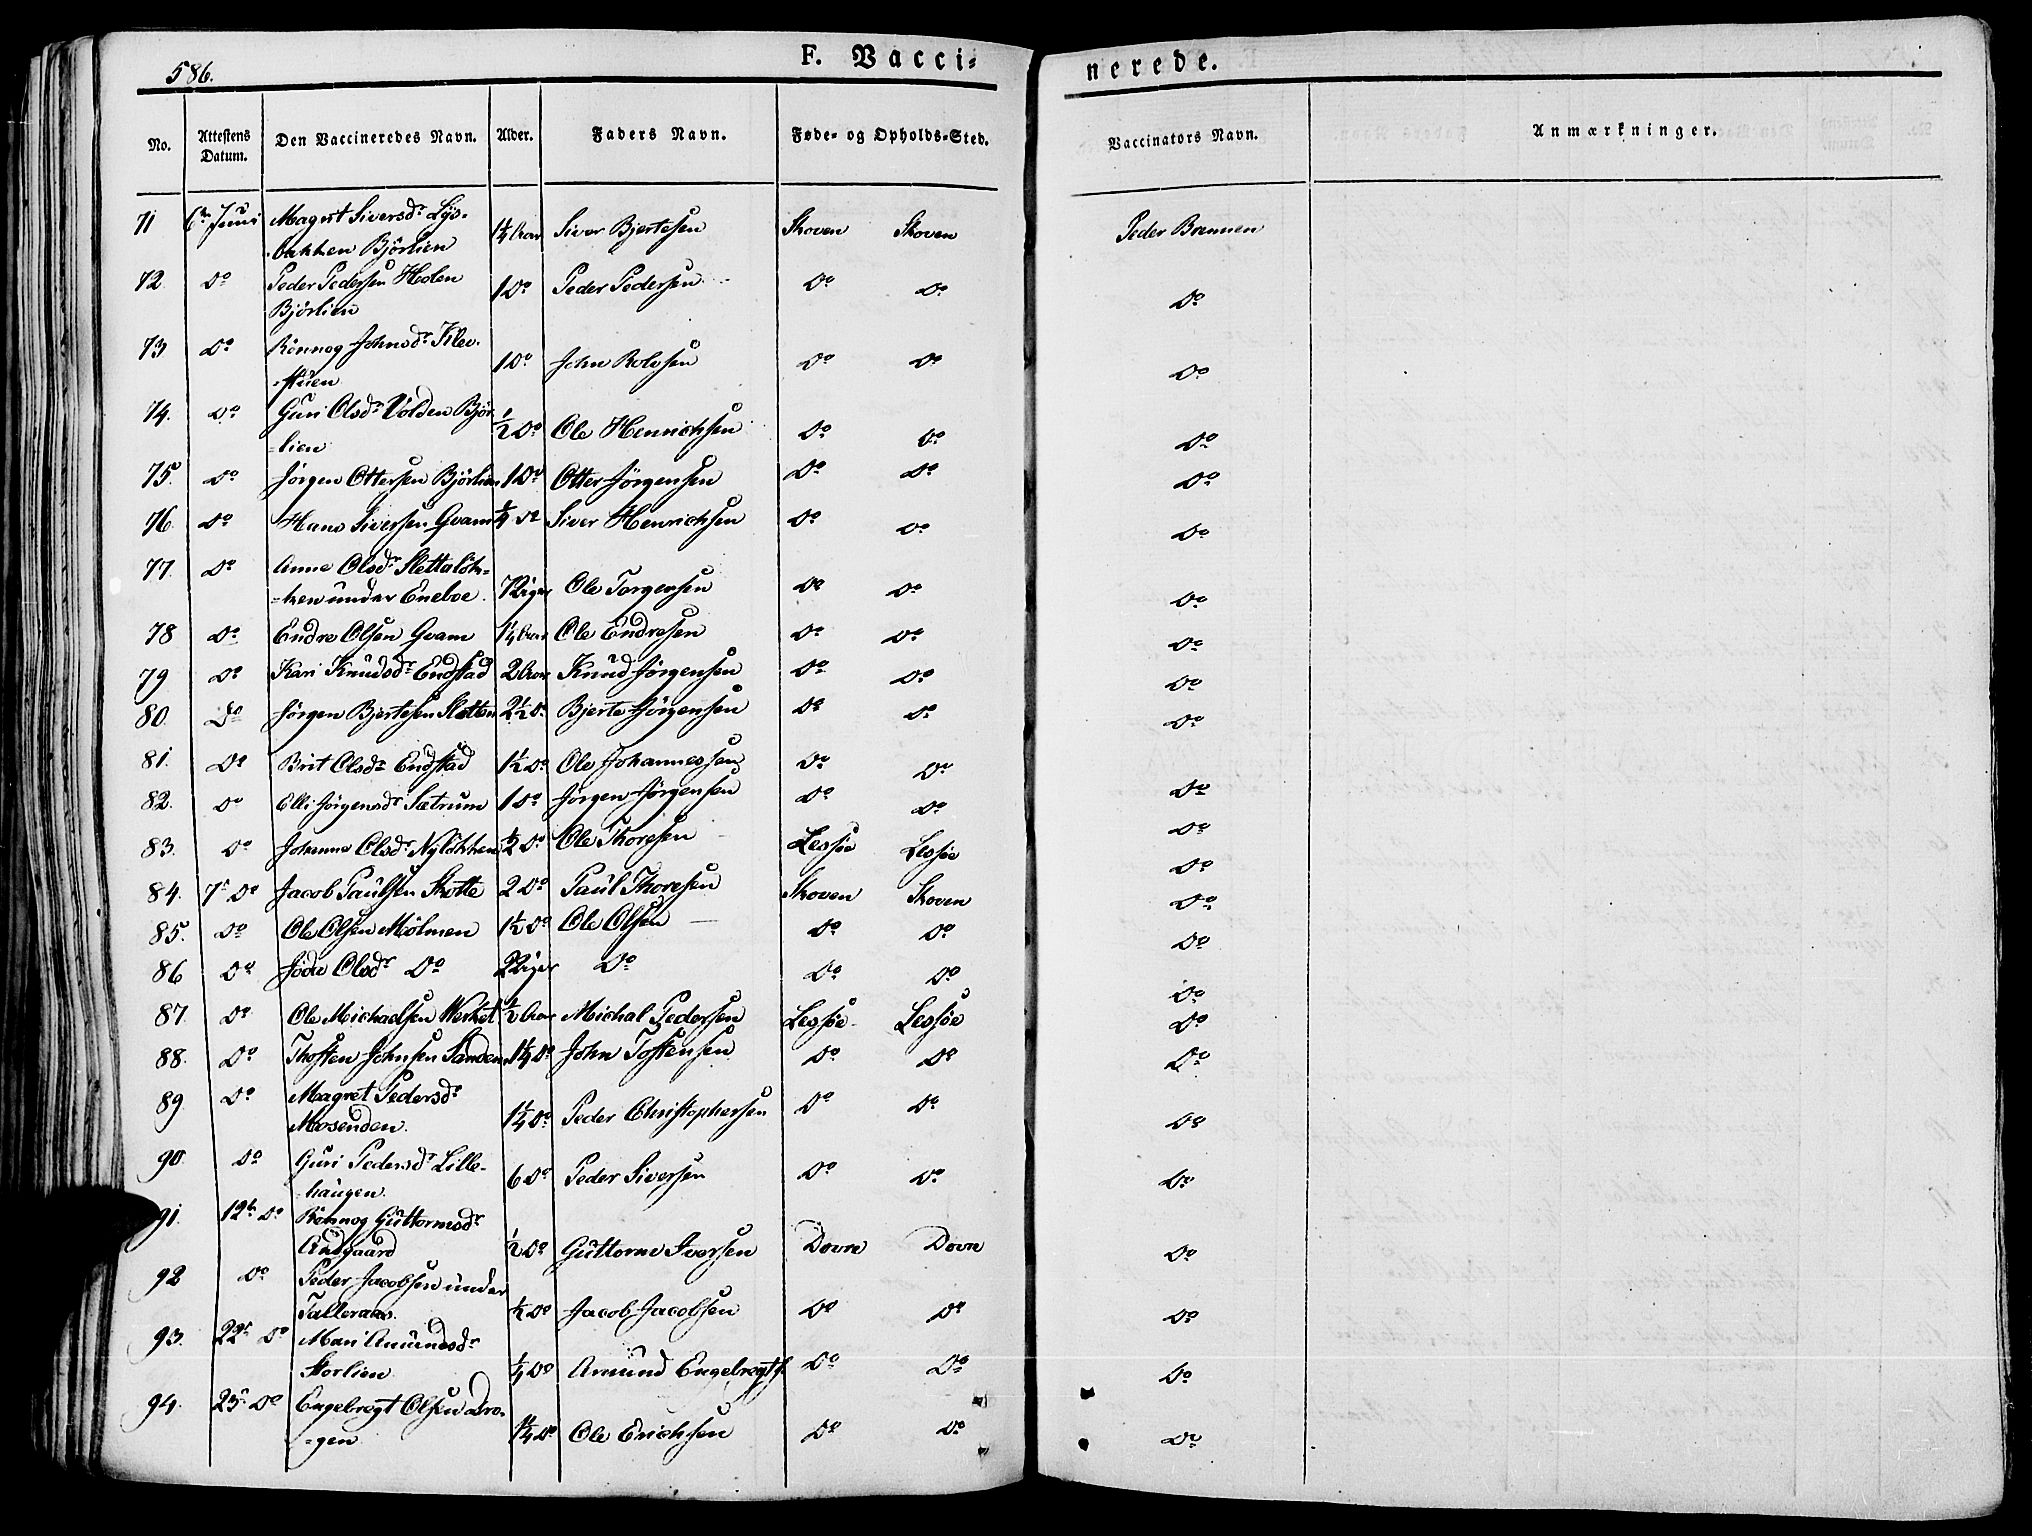 586.
F. Vacci- nerede.
No. Attestens Datum. Den Vaccineredes Navn. Alder. Faders Navn. Føde- og Opholds-Sted. Vaccinators Navn. Anmærkninger.
71 6te Juni Magrit Siversdr Lys- 1¼ Aar Siver Bjertesen Skoven Skoven Peder Brennen
bakken Bjørlien
72. Do Peder Pedersen Holen 1 Do Peder Pedersen Do Do Do
Bjørlien
73 Do Rönnog Johnsdr Klev- 1 Do John Rolvsen Do Do Do
stüen
74. Do Guri Olsdr Volden Bjør- ½ Do Ole Henrichsen Do Do Do
lien
75. Do Jørgen Ottersen Bjørlien 1 Do Otter Jörgensen Do Do Do
76. Do Hans Siversen Qvam ¼ Do Siver Henrichsen Do Do Do
77. Do Anne Olsdr Slettaløk- 7 Uger Ole Torgersen Do Do Do
ken under Eneboe.
78 Do Endre Olsen Qvam 1¼ Aar Ole Endresen Do Do Do
79 Do Kari Knudsdr Endstad 2 Aar Knud Jørgensen Do Do Do
80. Do Jørgen Bjertesen Sletten 2½ Do Bjerte Jørgensen Do Do Do
81. Do Brit Olsdr Endstad 1½ Do Ole Johannessen Do Do Do
82. Do Elli Jørgensdr Sætrum 1 Do Jørgen Jørgensen Do Do Do
83. Do Johanna Olsdr Nyløkken ½ Do Ole Thoresen Lessøe Lessøe Do
84. 7de Do Jacob Paulsen Skotte 2 Do Paul Thoresen Skoven Skoven Do
85. Do Ole Olsen Mølmen 1½ Do Ole Olsen Do Do Do
86 Do Olsdr Do Uger Do Do Do Do
87. Do Ole Michaelsen Werket ½ Aar Michal Pedersen Lessøe Lessøe Do
88. Do Thosten Johnsen Sanden 1¼ Do John Tostensen Do Do Do
89 Do Magret Pedersdr 1¼ Do Peder Christophersen Do Do Do
Mosenden.
90. Do Guri Pedersdr Lille- 6 Do Peder Siversen Do Do Do
haugen.
91. 12te Do Rönnog Guttormsdr ½ Do Guttorm Iversen Dovre Dovre Do
Audgaard
92 Do Peder Jacobsen under ½ Do Jacob Jacobsen Do Do Do
Talleraas.
93. 22de Do Mari Amundsdr ¼ Do Amund Engebregts. Do Do Do
Storlien
94. 23de Do Engebregt Olsen Bro- 1¼ Do Ole Erichsen Do Do Do
gen